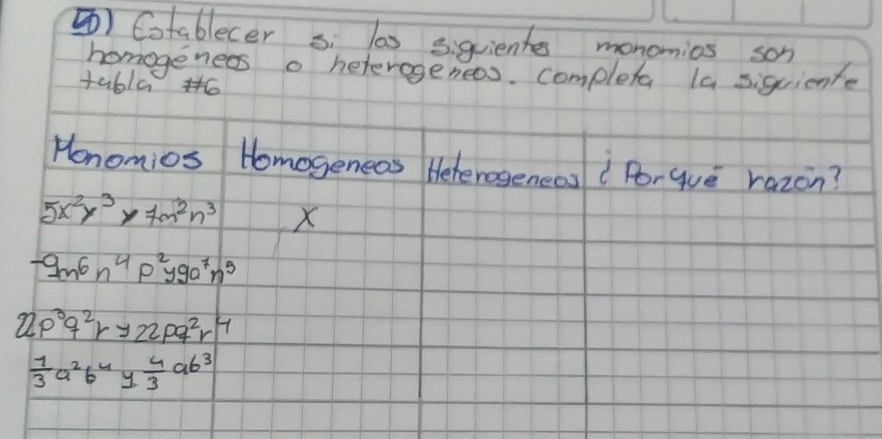 5) Establecer si los siguientes monomios son
homogéneos o heterogeneos. Completa la siguiente
tabla #6
Monomios Homogeneos Heterogeneos ¿Por qué razón?
5x²y³ y 7m²n³ X
-9m⁶n⁴p² y 9a⁷n⁵
22p³q²r y 22pq²r⁴
1/3 a²b⁴ y 4/3 ab³